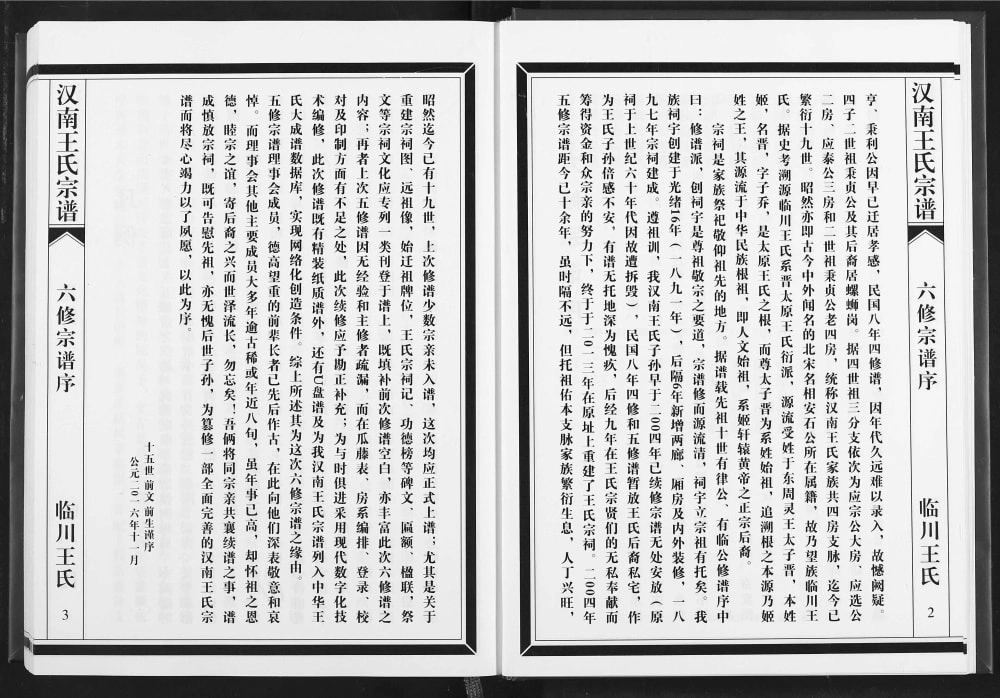 汉南王氏宗谱
六修宗谱序
临川王氏
2
亨、秉利公因早已迁居孝感，民国八年四修谱，因年代久远难以录入，故憾阙疑。
四子二世祖秉贞公及其后裔居螺蛳岗。据四世祖三分支依次为应宗公大房、应选公
二房、应泰公三房和二世祖秉贞公老四房，统称汉南王氏家族共四房支脉，迄今已
繁衍十九世。昭然亦即古今中外闻名的北宋名相安石公所在属籍，故乃望族临川王
氏。据史考溯源临川王氏系晋太原王氏衍派，源流受姓于东周灵王太子晋，本姓
姬，名晋，字子乔，是太原王氏之根，而尊太子晋为系姓始祖，追溯根之本源乃姬
姓之王，其源流于中华民族根祖，即人文始祖，系姬轩辕黄帝之正宗后裔。
宗祠是家族祭祀敬仰祖先的地方。据谱载先祖十世有律公、有临公修谱序中
曰：修谱派，创祠宇是尊祖敬宗之要道，宗谱修而源流清，祠宇立宗祖有托矣。我
族祠宇创建于光绪16年（一八九一年），后隔6年新增两廊、厢房及内外装修，一八
九七年宗祠建成。遵祖训，我汉南王氏子孙早于二00四年已续修宗谱无处安放（原
祠于上世纪六十年代因故遭拆毁），民国八年四修和五修谱暂放王氏后裔私宅，作
为王氏子孙倍感不安，有谱无托地深为愧疚，后经九年在王氏宗贤们的无私奉献而
筹得资金和众宗亲的努力下，终于于二0一三年在原址上重建了王氏宗祠。二00四年
五修宗谱距今已十余年，虽时隔不远，但托祖佑本支脉家族繁衍生息，人丁兴旺，
汉南王氏宗谱
六修宗谱序
临川王氏
3
昭然迄今已有十九世，上次修谱少数宗亲未入谱，这次均应正式上谱；尤其是关于
重建宗祠图、远祖像，始迁祖牌位，王氏宗祠记、功德榜等碑文、匾额、楹联，祭
文等宗祠文化应专列一类刊登于谱上，既填补前次修谱空白，亦丰富此次六修谱之
内容；再者上次五修谱因无经验和主修者疏漏，而在瓜藤表、房系编排、登录、校
对及印制方面有不足之处，此次续修应予勘正补充；为与时俱进采用现代数字化技
术编修，此次修谱既有精装纸质谱外，还有U盘谱及为我汉南王氏宗谱列入中华王
氏大成谱数据库，实现网络化创造条件。综上所述其为这次六修宗谱之缘由。
五修宗谱理事会成员，德高望重的前辈长者已先后作古，在此向他们深表敬意和哀
悼。而理事会其他主要成员大多年逾古稀或年近八旬，虽年事已高，却怀祖之恩
德，睦宗之谊，寄后裔之兴而世泽流长，勿忘矣！吾俩将同宗亲共襄续谱之事，谱
成慎放宗祠，既可告慰先祖，亦无愧后世子孙，为篡修一部全面完善的汉南王氏宗
谱而将尽心竭力以了夙愿，以此为序。
十五世前文、前生谨序
公元二0一六年十一月